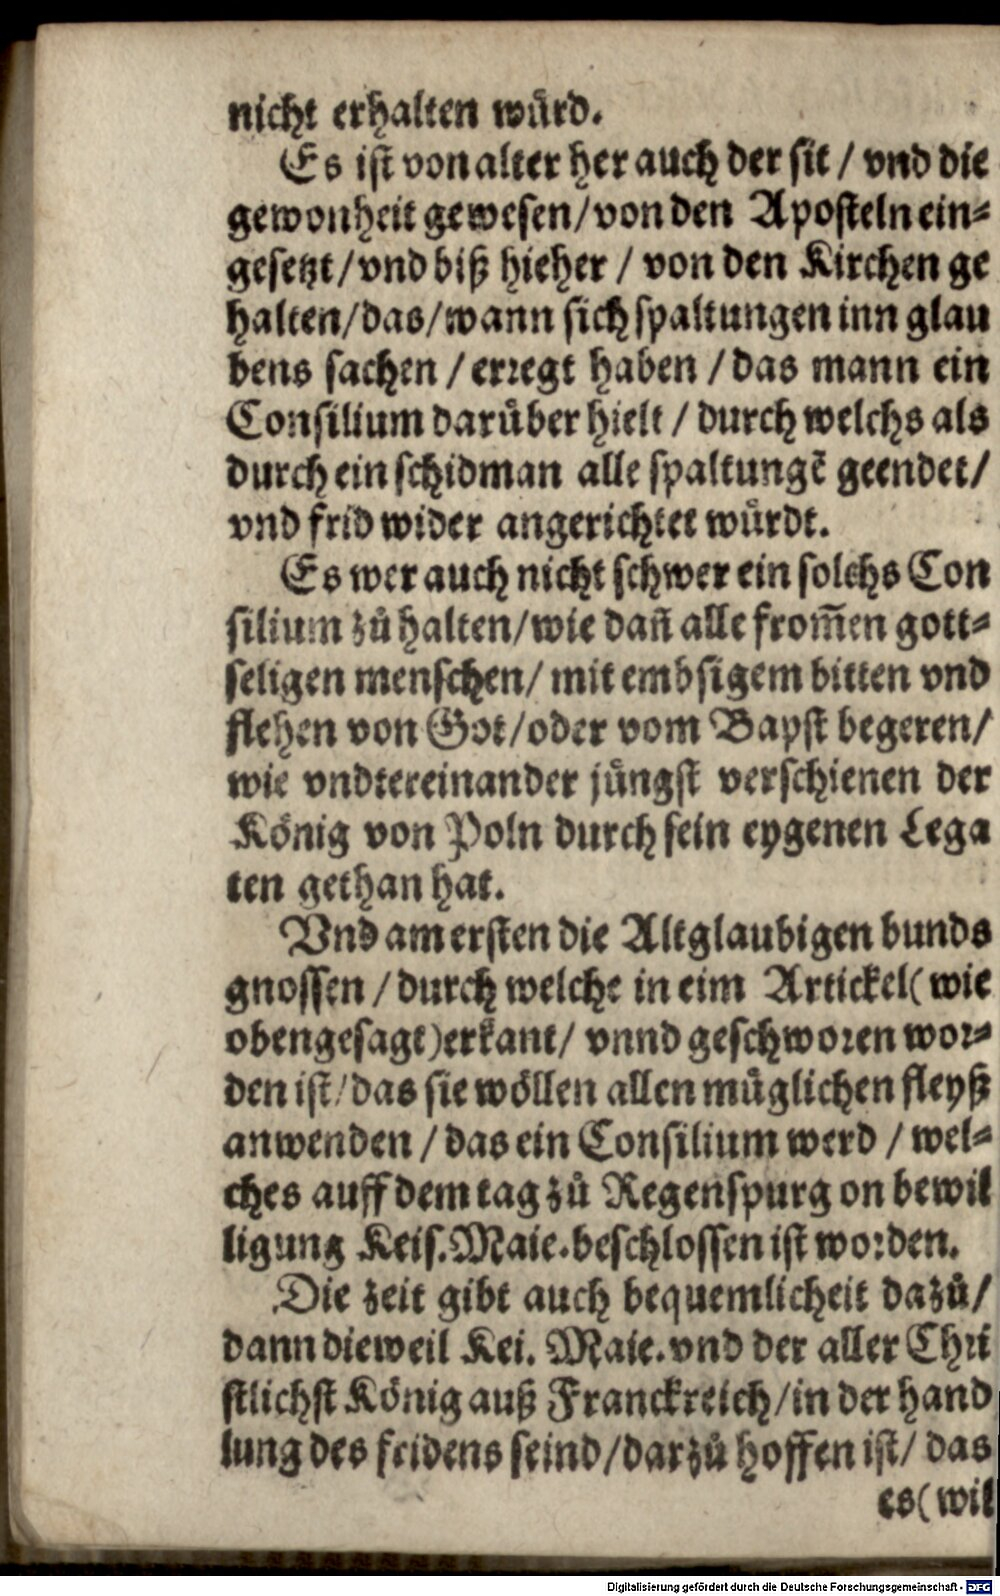 nicht erhalten wuͤrd.
Es ist von alter her auch der sit / vnd die
gewonheit gewesen/von den Aposteln ein⸗
gesetzt/vnd biß hieher / von den Kirchen ge
halten/das/wann sich spaltungen inn glau
bens sachen / erregt haben / das mann ein
Consilium daruͤber hielt / durch welchs als
durch ein schidman alle spaltungē geendet/
vnd frid wider angerichtet wuͤrdt.
Es wer auch nicht schwer ein solchs Con
silium zuͦ halten/wie dañ alle from̃en gott⸗
seligen menschen/ mit embsigem bitten vnd
flehen von Got/oder vom Bapst begeren/
wie vndtereinander juͤngst verschienen der
Koͤnig von Poln durch sein eygenen Lega
ten gethan hat.
Vnd am ersten die Altglaubigen bunds
gnossen / durch welche in eim Artickel( wie
obengesagt)erkant/ vnnd geschworen wor⸗
den ist/das sie woͤllen allen muͤglichen fleyß
anwenden / das ein Consilium werd / wel⸗
ches auff dem tag zuͦ Regenspurg on bewil
ligung Keis. Maie. beschlossen ist worden.
Die zeit gibt auch bequemlicheit dazuͦ/
dann dieweil Kei. Maie. vnd der aller Chri
stlichst Koͤnig auß Franckreich/in der hand
lung des fridens seind/darzuͦ hoffen ist/ das
es( wil
Digitalisierung gefördert durch die Deutsche Forschungsgemeinschaft - DFG